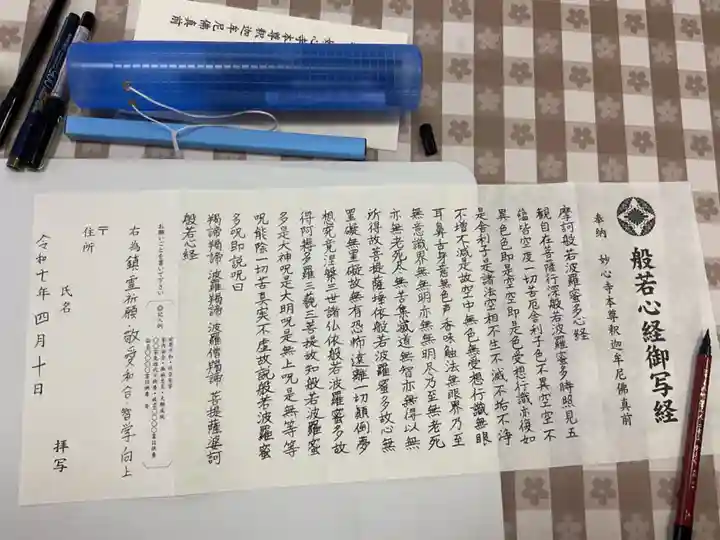 般若心経御写経
奉納　妙心寺本尊釈迦牟尼佛真前
摩訶般若波羅蜜多心経
観自在菩薩行深般若波羅蜜多時照見五
蘊皆空度一切苦厄舎利子色不異空空不
異色色即是空空即是色受想行識亦復如
是舎利子是諸法空相不生不滅不垢不浄
不増不減是故空中無色無受想行識無眼
耳鼻舌身意無色声香味触法無眼界乃至
無意識界無無明亦無無明尽乃至無老死
亦無老死尽無苦集滅道無智亦無得以無
所得故菩提薩埵依般若波羅蜜多故心無
罣礙無罣礙故無有恐怖遠離一切顛倒夢
想究竟涅槃三世諸仏依般若波羅蜜多故
得阿耨多羅三藐三菩提故知般若波羅蜜
多是大神呪是大明呪是無上呪是無等等
呪能除一切苦真実不虚故説般若波羅蜜
多呪即説呪曰
羯諦羯諦　波羅羯諦　波羅僧羯諦　菩提薩婆訶
般若心経
お願いごとを書いて下さい
◎記入例
右為鎮霊祈願・敬愛和合・智学向上
〒
住所
氏名
令和七年四月十日　拝写
心寺本尊釈迦牟尼佛真前